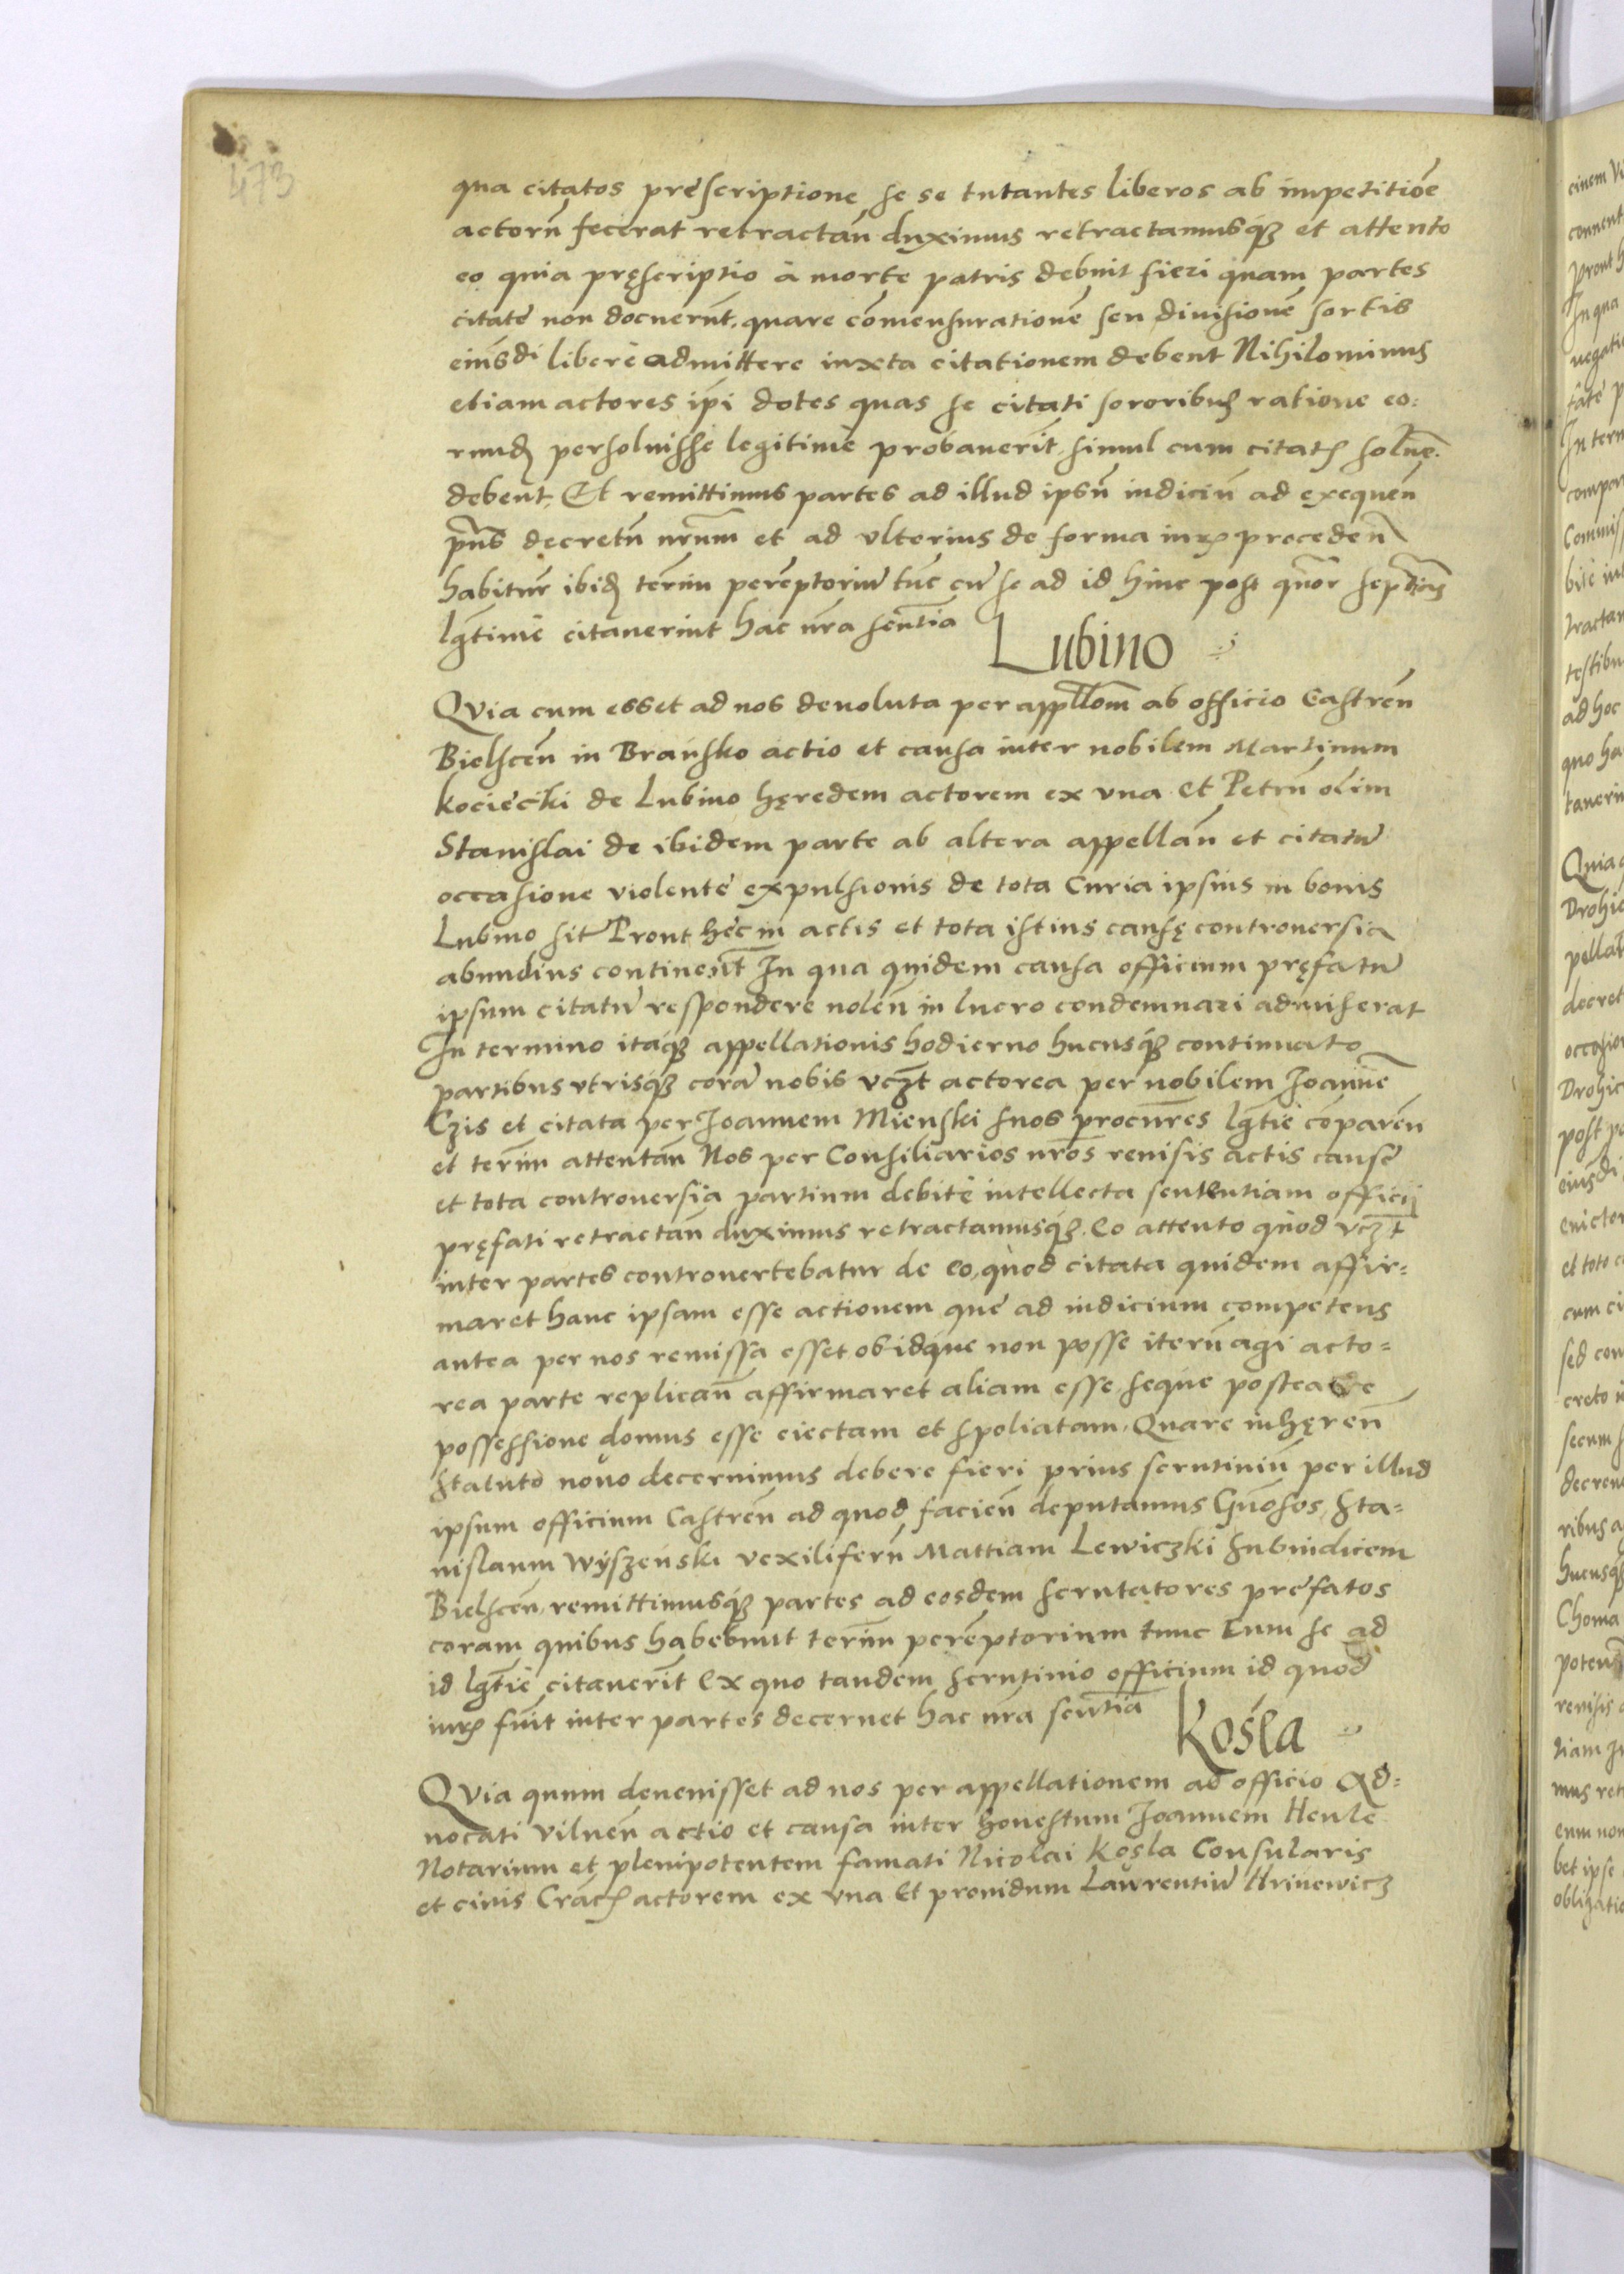 473
qua citatos prescriptione se se tutantes liberos ab impetitiōe
actorū fecerat retractan̄ duximus retractamusq̃ et attento
eo quia pręscriptio à morte patris debuit fieri quam partes
citate non docuerūt, quare cōmensurationē seu diuisionē sortis
eiusdi liberè admittere iuxta citationem debent Nihilominus
etiam actores ipi dotes quas se citati sororibus ratione eo:
rund persoluisse legitimè probauerīt simul cum citatis
debent. Et remittimus partes ad illud ipsū iudiciū ad exequen̄
pn̄s decretū nr̄um et ad vlterius de forma iuris proceden̄
habitur ibid termīn peremptoriū tūc cū se ad id hinc post quatuor
lg̃time citauerint hac nr̄a sentītia
Lubino
Qvia cum esset ad nos deuoluta per appllōm ab officio Castren̄
Bielscen̄ in Brańsko actio et causa inter nobilem Martinum
Kociećki de Lubino hęredem actorem ex vna et Petrū olim
Stanislai de ibidem parte ab altera appellan̄ et citatū
occasione violente expulsionis de tota Curia ipsius in bonis
Lubino sit Prout hec in actis et tota istius causę controuersia
abundius continent In qua quidem causa officium pręfatū
ipsum citatū respondere nolen̄ in lucro condemnari admiserat
In termino itaq̃ appellationis hodierno hucusq̃ continuato
partibus vtrisq̃ corā nobis vcz̃t actorea per nobilem Joannē
Czis et citata per Joannem Mienski suos procur̄es lg̃tie cōparen̄
et termīn attentan̄ Nos per Consiliarios nr̄os reuisis actis cause
et tota controuersia partium debitè intellecta sententiam officij
pręfati retractan̄ duximus retractamusq̃. Eo attento quod vcz̃t
inter partes controuertebatur de eo, quòd citata quidem affir=
maret hanc ipsam esse actionem que ad iudicium competens
antea per nos remissa esset, ob idque non posse iterū agi acto=
rea parte replican̄ affirmaret aliam esse seque postea de
possessione domus esse eiectam et spoliatam. Quare inhęren̄
statuto nouo decernimus debere fieri prius scrutiniū per illud
ipsum officium Castren̄ ad quod facien̄ deputamus Gn̄osos Sta=
nislaum Wyszeński vexiliferū Mattiam Lewiczki Subiudicem
Bielscen̄ remittimusq̃ partes ad eosdem scrutatores prefatos
coram quibus habebunt termīn peremptorium tunc Cum se ad
id lg̃tie citauerīt Ex quo tandem scrutinio officium id quod
iuris fuit inter partes decernet hac nr̄a sentītia
Kośla
Qvia quum deuenisset ad nos per appellationem ab officio Ad=
uocati vilnen̄ actio et causa inter honestum Joannem Henle
Notarium et plenipotentem famati Nicolai Kosla Consularis
et ciuis Crac actorem ex vna Et prouidum Laurentiū Hrinewicz